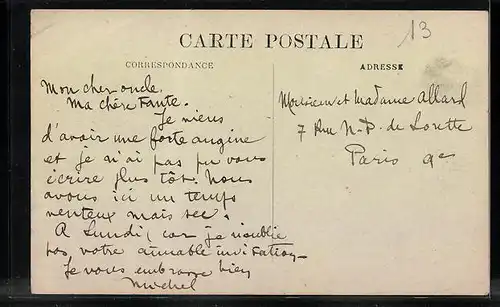 13
CARTE POSTALE
CORRESPONDANCE
ADRESSE
Mon cher oncle.
Ma chère Tante.
Je viens
d'avoir une forte angine
et je n'ai pas pu vous
écrire plus tôt. Nous
avons ici un temps
venteux mais sec.
A Lundi, car je n'oublie
pas votre aimable invitation
Je vous embrasse bien
Michel
Monsieur et Madame Allard
7 Rue N-D. de Lorette
Paris 9e